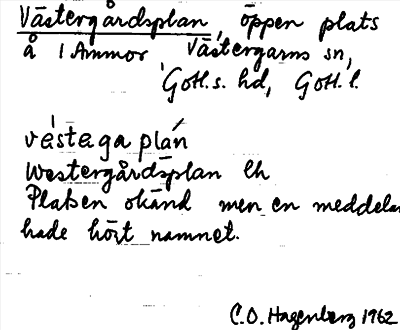 Västergårdsplan, öppen plats
å 1 Ammor, Västergarns sn,
Gotl.s. hd, Gotl. l.
västaga plán
Westergårdsplan lh
Platsen okänd men en meddelar
hade hört namnet.
C.O. Hagenberg 1962